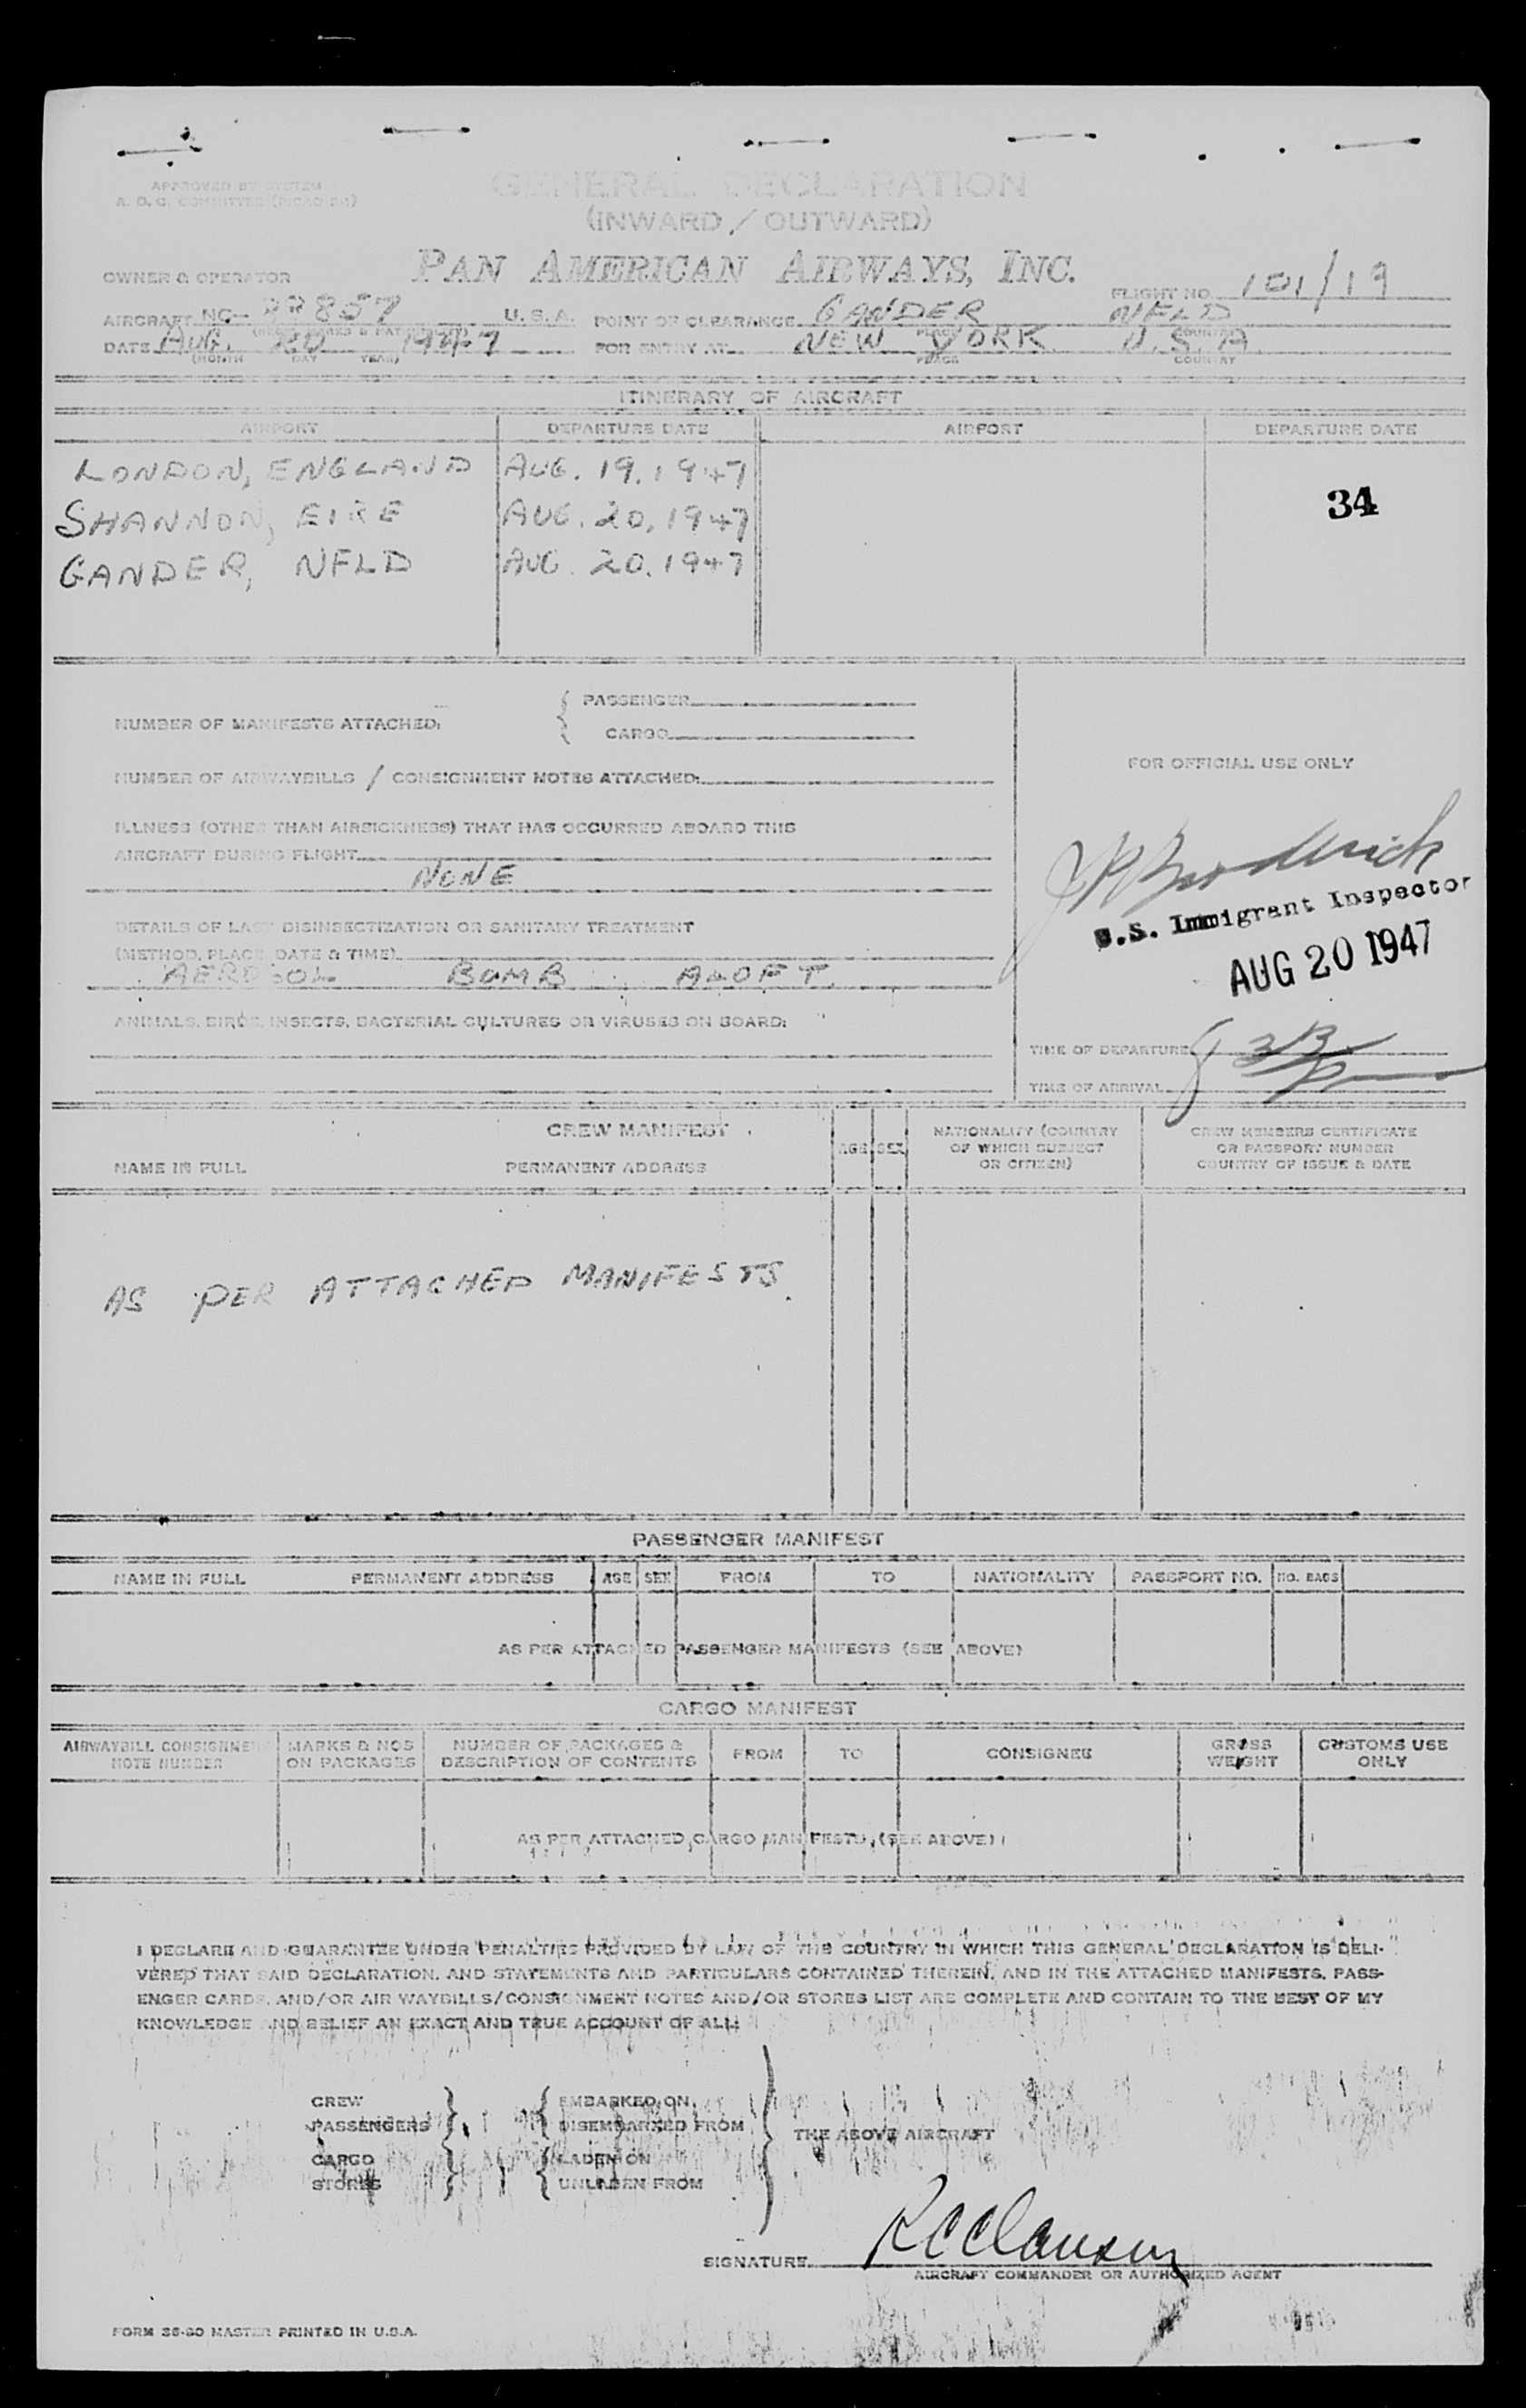 APPROVED BY SYSTEM
A. O. G. COMMITTEE
GENERAL DECLARATION
(INWARD / OUTWARD)
OWNER & OPERATOR PAN AMERICAN AIRWAYS, INC.
FLIGHT NO. 101/19
AIRCRAFT NC- 88857 U. S. A. POINT OF CLEARANCE GANDER NFLD
PLACE COUNTRY
DATE AUG. 20 1947 FOR ENTRY AT NEW YORK U. S. A.
(MONTH DAY YEAR) PLACE COUNTRY
ITINERARY OF AIRCRAFT
AIRPORT DEPARTURE DATE AIRPORT DEPARTURE DATE
LONDON, ENGLAND AUG. 19. 1947
34
SHANNON, EIRE AUG. 20, 1947
GANDER, NFLD AUG. 20. 1947
NUMBER OF MANIFESTS ATTACHED: { PASSENGER
CARGO
NUMBER OF AIRWAYBILLS / CONSIGNMENT NOTES ATTACHED:
FOR OFFICIAL USE ONLY
ILLNESS (OTHER THAN AIRSICKNESS) THAT HAS OCCURRED ABOARD THIS
AIRCRAFT DURING FLIGHT
NONE
U.S. Immigrant Inspector
AUG 20 1947
DETAILS OF LAST DISINSECTIZATION OR SANITARY TREATMENT
(METHOD, PLACE, DATE & TIME)
AEROSOL BOMB ALOFT.
ANIMALS, BIRDS, INSECTS, BACTERIAL CULTURES OR VIRUSES ON BOARD:
TIME OF DEPARTURE
TIME OF ARRIVAL
CREW MANIFEST
NAME IN FULL PERMANENT ADDRESS AGE SEX NATIONALITY (COUNTRY OF WHICH SUBJECT OR CITIZEN) CREW MEMBERS CERTIFICATE OR PASSPORT NUMBER COUNTRY OF ISSUE & DATE
AS PER ATTACHED MANIFESTS.
PASSENGER MANIFEST
NAME IN FULL PERMANENT ADDRESS AGE SEX FROM TO NATIONALITY PASSPORT NO. NO. BAGS
AS PER ATTACHED PASSENGER MANIFESTS (SEE ABOVE)
CARGO MANIFEST
AIRWAYBILL CONSIGNMENT NOTE NUMBER MARKS & NOS ON PACKAGES NUMBER OF PACKAGES & DESCRIPTION OF CONTENTS FROM TO CONSIGNEE GROSS WEIGHT CUSTOMS USE ONLY
AS PER ATTACHED CARGO MANIFESTS (SEE ABOVE)
I DECLARE AND GUARANTEE UNDER PENALTIES PROVIDED BY LAW OF THE COUNTRY IN WHICH THIS GENERAL DECLARATION IS DELI-
VERED THAT SAID DECLARATION, AND STATEMENTS AND PARTICULARS CONTAINED THEREIN, AND IN THE ATTACHED MANIFESTS, PASS-
ENGER CARDS, AND/OR AIR WAYBILLS/CONSIGNMENT NOTES AND/OR STORES LIST ARE COMPLETE AND CONTAIN TO THE BEST OF MY
KNOWLEDGE AND BELIEF AN EXACT AND TRUE ACCOUNT OF ALL:
CREW EMBARKED ON
PASSENGERS DISEMBARKED FROM
THE ABOVE AIRCRAFT
CARGO LADEN ON
STORES UNLADEN FROM
SIGNATURE R C Clausen
AIRCRAFT COMMANDER OR AUTHORIZED AGENT
FORM 36-80 MASTER PRINTED IN U.S.A.